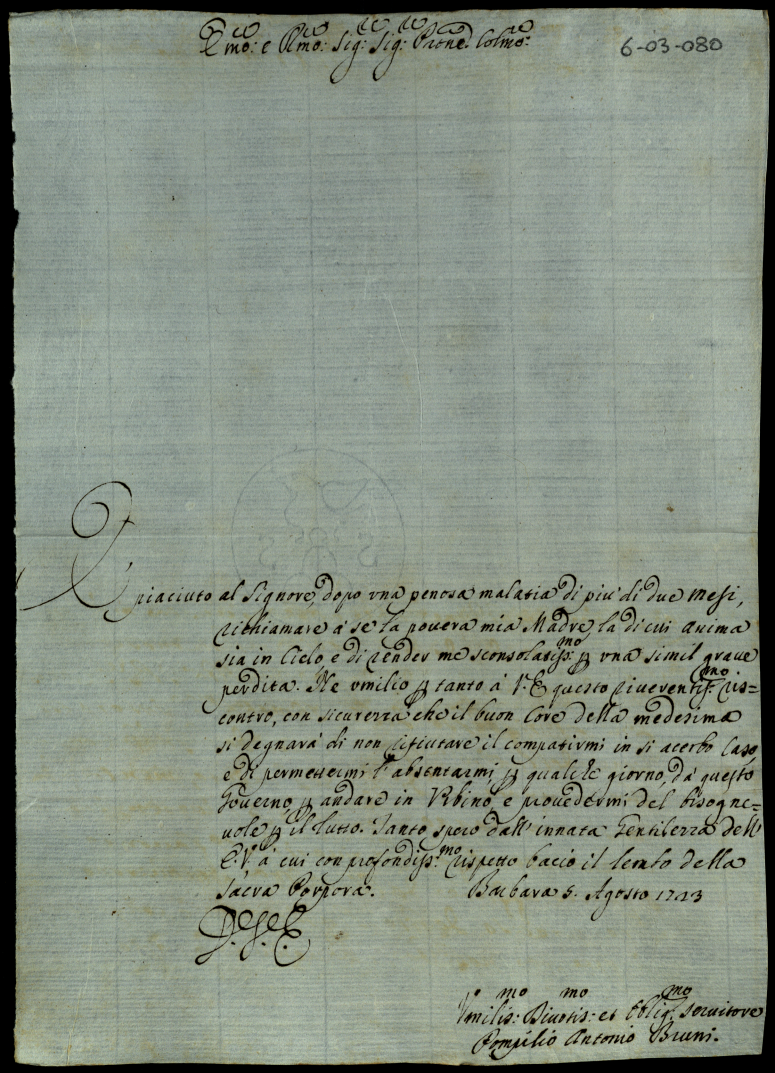 E.mo: e R.mo: Sig.re: Sig.re: Pãone Colmo:
6-03-080
È piaciuto al Signore, dopo vna penosa malatia di più di due mesi,
richiamare à se la pouera mia Madre, la di cui anima
sia in Cielo, e di render me sconsolatiss:mo ꝑ vna simil graue
perdita. Ne vmilio ꝑ tanto à V.E. questo riuerentis:mo ris=
contro, con sicurezza che il buon Core della medesima
si degnarà di non rifiutare il compatirmi in si acerbo Caso,
e di permettermi l'absentarmi, ꝑ qualche giorno, dà questo
Gouerno, ꝑ andare in Vrbino, e prouedermi del bisogne=
uole ꝑ il lutto. Tanto spero dall'innata Gentilezza dell'
E.V. à cui con profondiss:mo rispetto bacio il lembo della
Sacra Porpora. Barbara 5. Agosto 1743
D. V. E.
Vmilis:mo Diuotis:mo et Oblig:mo seruitore
Pompilio Antonio Bruni.